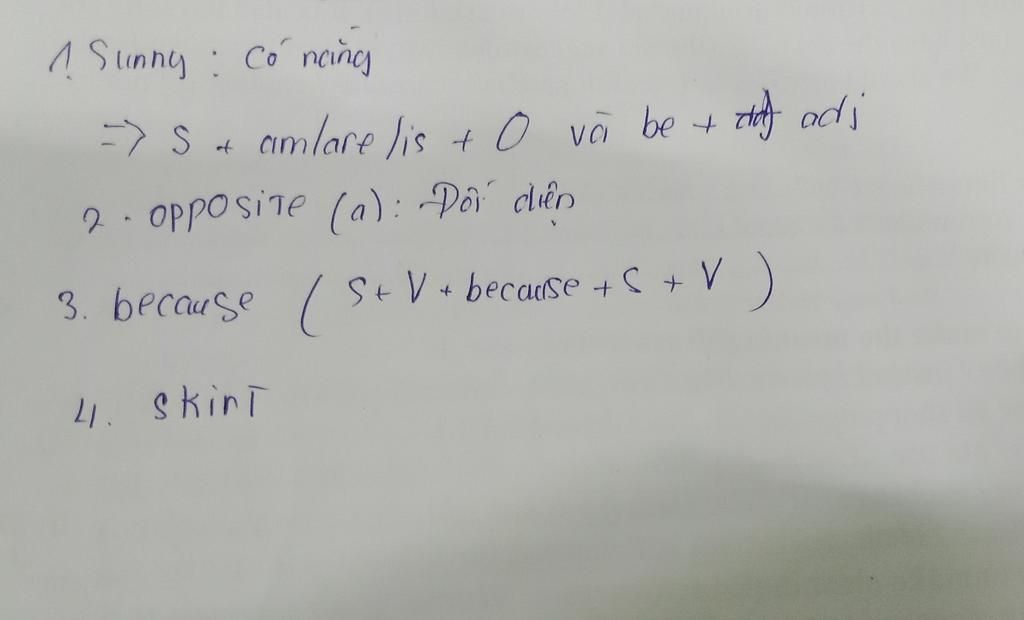 1. Sunny : Có nắng
=> S + am/are/is + O và be + adj
2. opposite (a): Đối diện
3. because ( S + V + because + S + V )
4. skirt